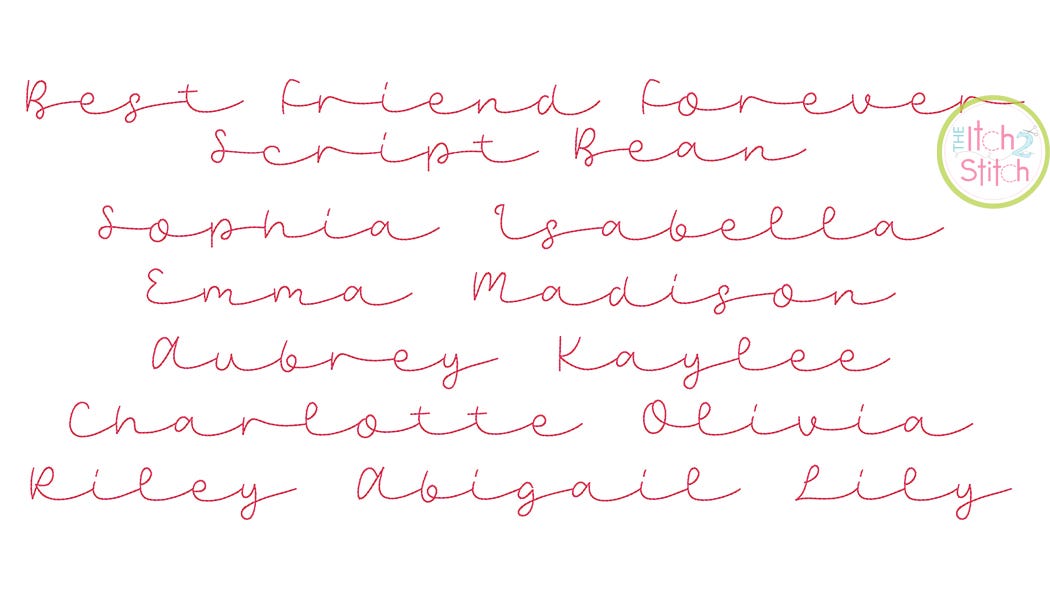 Best Friend Forever
Script Bean
THE Itch 2 Stitch
Sophia Isabella
Emma Madison
Aubrey Kaylee
Charlotte Olivia
Riley Abigail Lily